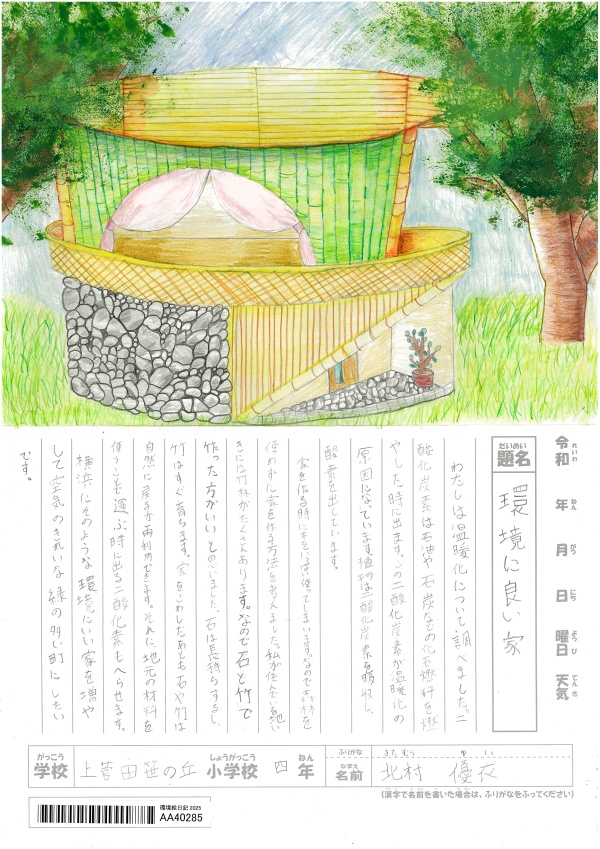 令和 れいわ
年 ねん
月 がつ
日 にち
曜日 ようび
天気 てんき
だいめい
題名
環境に良い家
わたしは温暖化について調べました。二
酸化炭素は石油や石炭などの化石燃料を燃
やした時に出ます。この二酸化炭素が温暖化の
原因になっています。植物は二酸化炭素を吸収し、
酸素を出しています。
家を作る時に木をいっぱい使ってしまいます。なので森林を
使わずに家を作る方法を考えました。私が住んでいる地い
きには竹林がたくさんあります。なので石と竹で
作った方がいいと思いました。石は長持ちするし、
竹はすぐ育ちます。家をこわしたあとも石や竹は
自然に戻るか再利用できます。それに地元の材料を
使うことで運ぶ時に出る二酸化炭素もへらせます。
横浜にそのような環境にいい家を増や
して空気のきれいな緑の多い町にしたい
です。
がっこう しょうがっこう ねん
学校 上菅田笹の丘 小学校 四 年
ふりがな きたむら ゆい
なまえ
名前 北村 優衣
(漢字で名前を書いた場合は、ふりがなをふってください)
環境絵日記 2025
AA40285